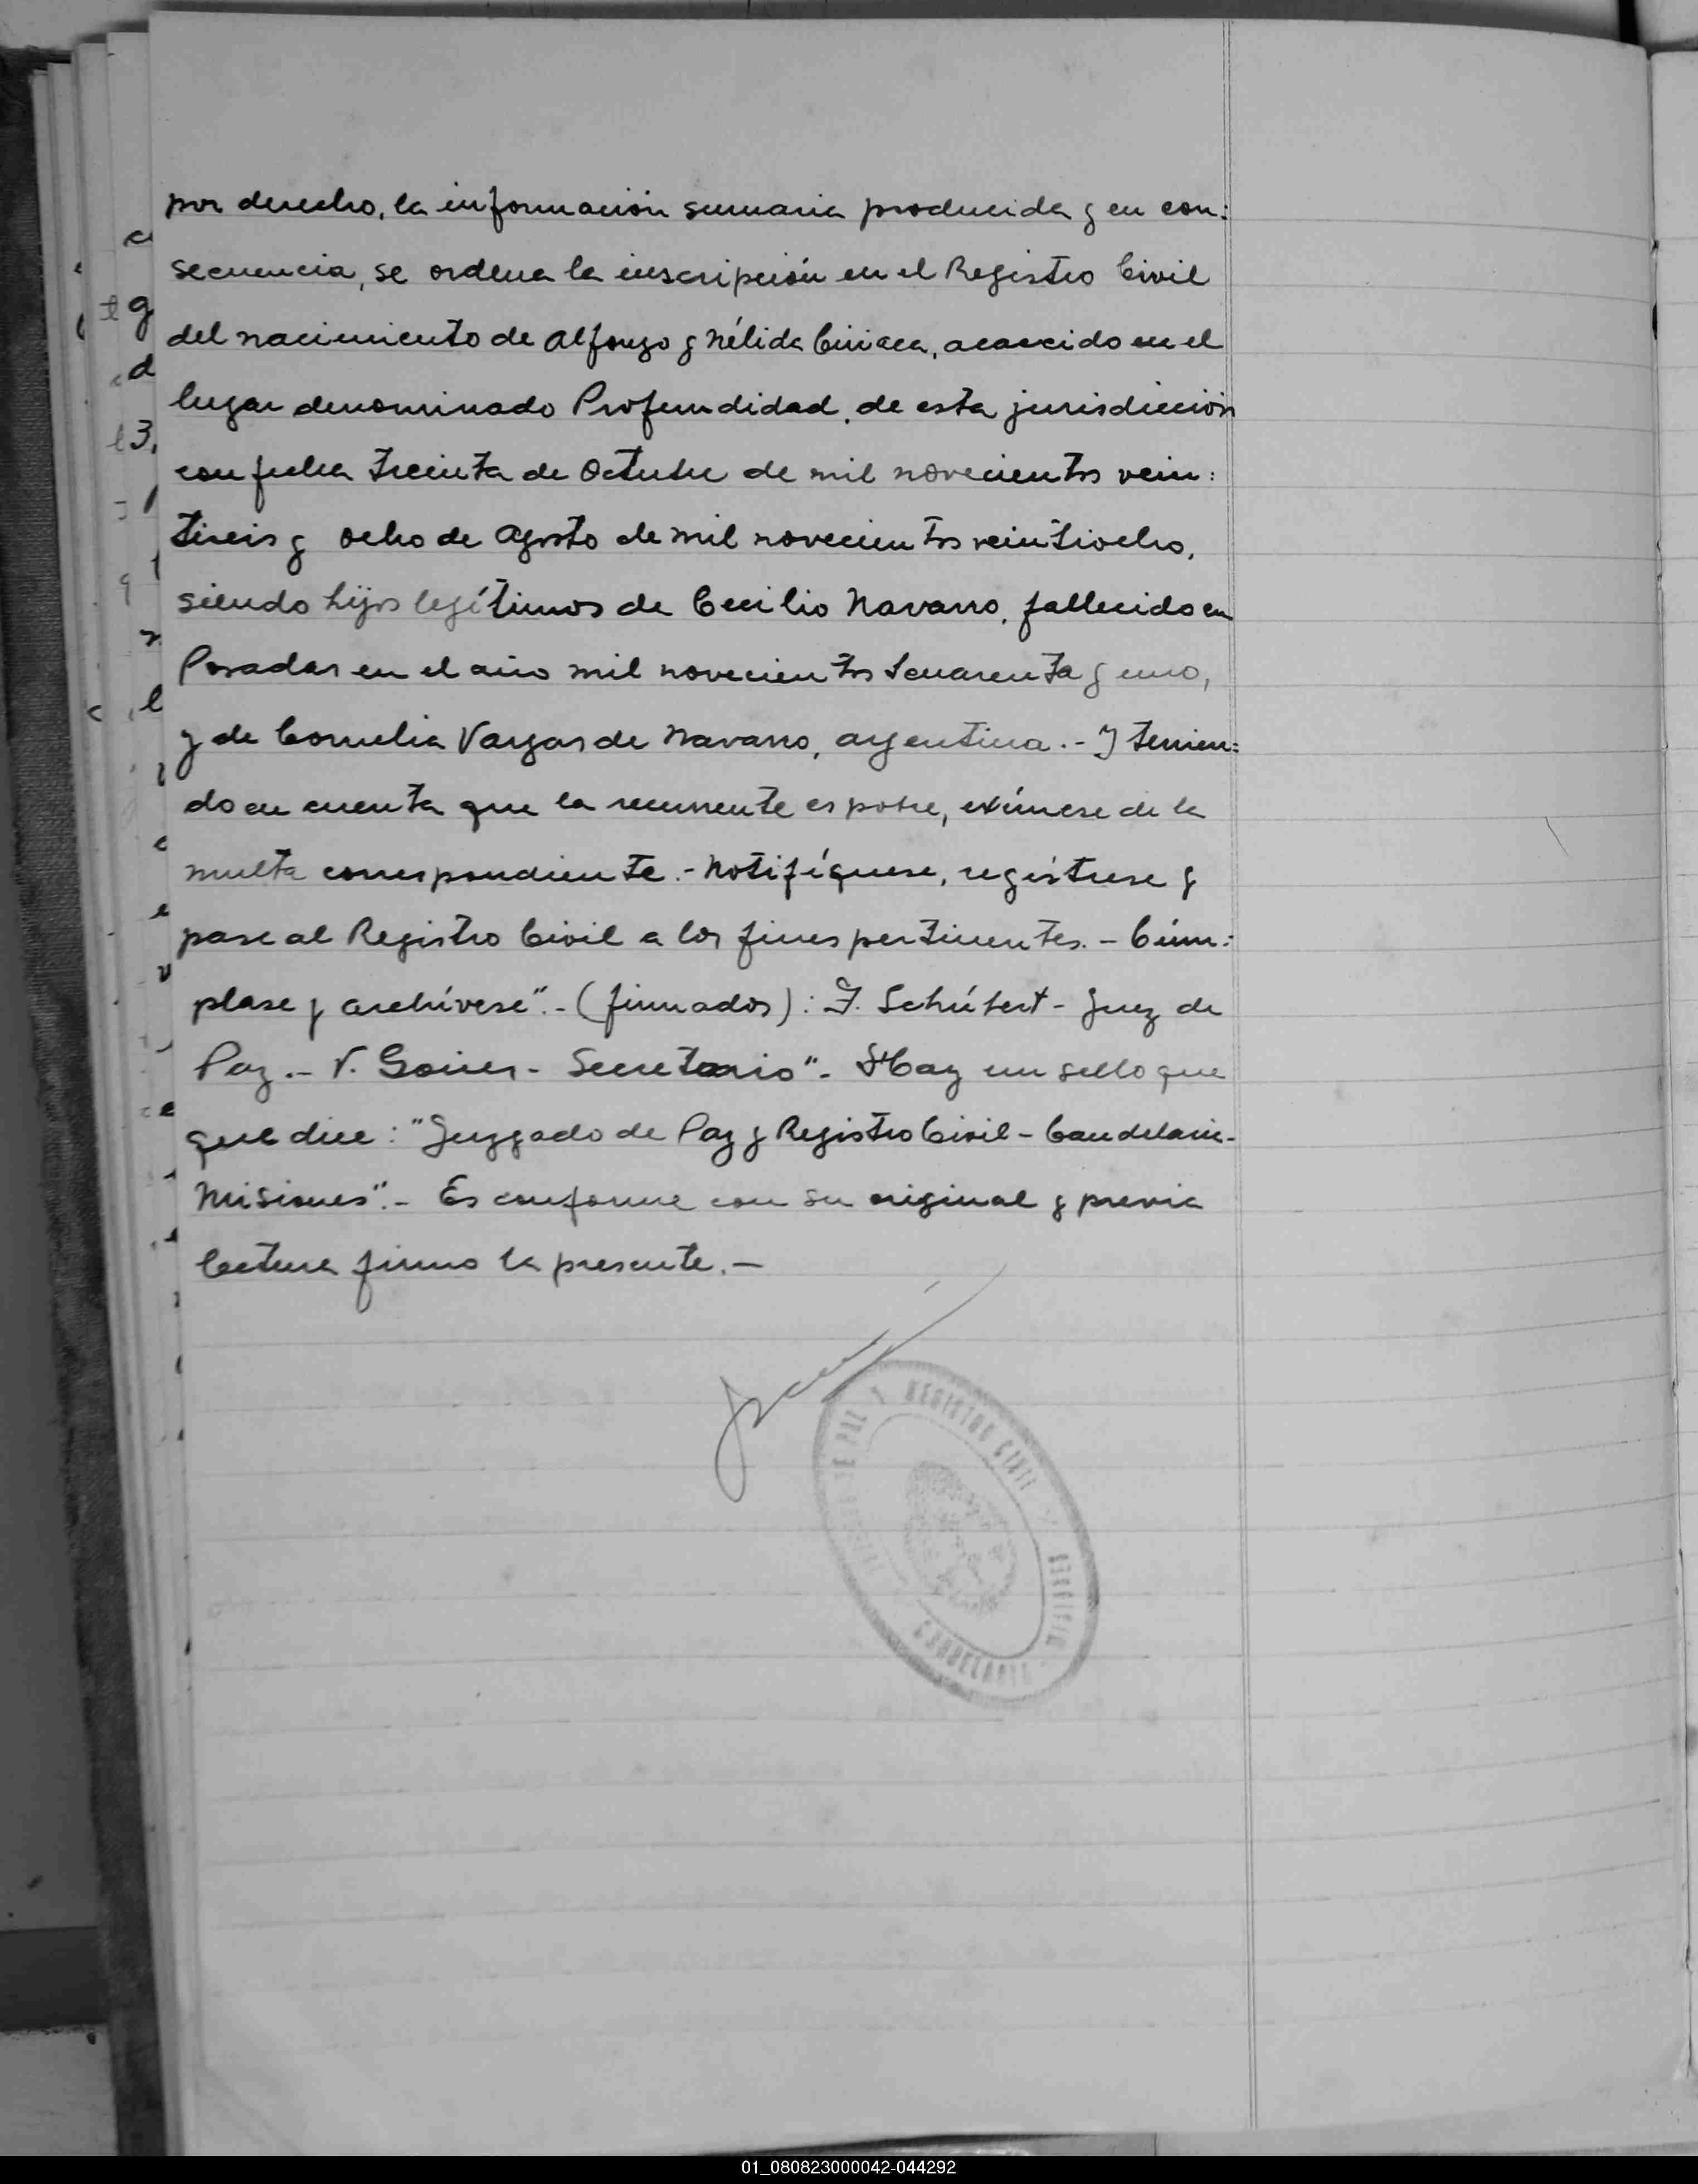 por derecho, la información sumaria producida y en con:
secuencia, se ordena la inscripción en el Registro Civil
del nacimiento de Alfonzo y Nélida Ciriaca, acaecido en el
lugar denominado Profundidad, de esta jurisdicción
con fecha treinta de Octubre de mil novecientos vein:
tiseis y ocho de Agosto de mil novecientos veintiocho,
siendo hijos legítimos de Cecilio Navarro, fallecido en
Posadas en el año mil novecientos cuarenta y uno,
y de Cornelia Vargas de Navarro, argentina.- Y tenien:
do en cuenta que la recurrente es pobre, exímese de la
multa correspondiente.- Notifíquese, regístrese y
pase al Registro Civil a los fines pertinentes.- Cúm:
plase y archívese".- (firmados): F. Schúbert - Juez de
Paz.- V. - Secretario".- Hay un sello que
que dice: "Juzgado de Paz y Registro Civil - Candelaria -
Misiones".- Es conforme con su original y previa
lectura firmo la presente.-
DE PAZ Y REGISTRO CIVIL
MISIONES
CANDELARIA
01_080823000042-044292